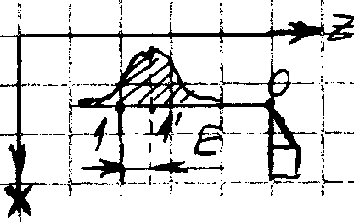 Z
O
1 1' E
X